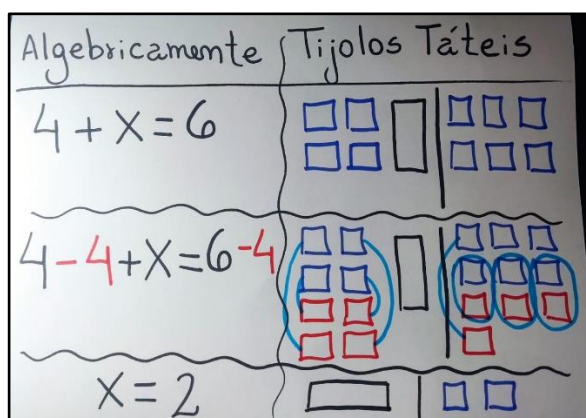 Algebricamente Tijolos Táteis
4 + x = 6
4 - 4 + x = 6 - 4
x = 2